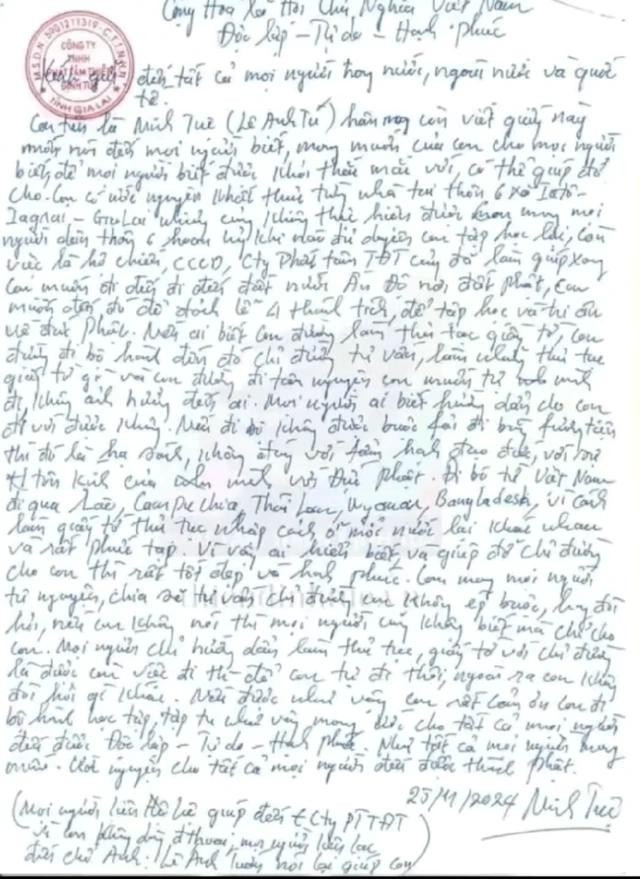 Cộng Hòa Xã Hội Chủ Nghĩa Việt Nam
Độc lập - Tự do - Hạnh Phúc
M.S.D.N: 5901211319 - C.T.T.N.H.H
CÔNG TY
TNHH
TỈNH GIA LAI
Kính gửi đến tất cả mọi người trong nước, ngoài nước và quốc
tế.
Con tên là Minh Tuệ (Lê Anh Tú) hôm nay con viết giấy này
muốn nói đến mọi người biết, mong muốn của con cho mọi người
biết để mọi người biết được khỏi thắc mắc với, có thể giúp đỡ
cho. Con có ước nguyện khất thực từng nhà tại thôn 6 xã Iatô-
Iagrai - Gia Lai nhưng cũng không thực hiện được mong mọi
người dân thôn 6 hoan hỷ khi nào đủ duyên con tập học lại, còn
việc là hộ chiếu, CCCD, Cty Pháp tâm TĐT cũng đã làm giúp xong
con muốn đi đến đất nước Ấn Độ nơi đất Phật, con
muốn đến đó để đảnh lễ 4 thánh tích, để tập học và tri ân
về Đức Phật. Nếu ai biết con đường làm thủ tục giấy tờ con
đường đi bộ hành đến đó chỉ đường tư vấn, làm những thủ tục
giấy tờ gì và con đường đi tâm nguyện con muốn tự mình
đi, không ảnh hưởng đến ai. Mọi người ai biết hướng dẫn cho con
đi với được không. Nếu đi bộ không được buộc phải đi bằng phương tiện
thì đó là hạ sách, không đúng với tâm hạnh đạo đức, với sự
tôn kính của mình với Đức Phật. Đi bộ từ Việt Nam
đi qua Lào, Campuchia, Thái Lan, Myanmar, Bangladesh, vì cách
làm giấy tờ thủ tục nhập cảnh ở mỗi nước lại khác nhau
và rất phức tạp. Vì vậy ai hiểu biết và giúp đỡ chỉ đường
cho con thì rất tốt đẹp và hạnh phúc. Con mong mọi người
tự nguyện, chia sẻ tư vấn chỉ đường con không ép buộc, hay đòi
hỏi, nếu con không nói thì mọi người cũng không biết mà chỉ cho
con. Mọi người chỉ hướng dẫn làm thủ tục, giấy tờ với chỉ đường
là được còn việc đi thì để con tự đi thôi, ngoài ra con không
đòi hỏi gì khác. Nếu được như vậy con rất cảm ơn con đi
bộ hành học tập, tập tu như vậy mong ước cho tất cả mọi người
đều được Độc lập - Tự do - Hạnh phúc. Như tất cả mọi người mong
muốn. Ước nguyện cho tất cả mọi người đều được thành Phật.
25/11/2024 Minh Tuệ
(Mọi người liên hệ hỗ giúp đến Cty PTTĐT
vì con không dùng điện thoại, mọi người liên lạc
đến chỗ Anh: Lê Anh nói lại giúp con)